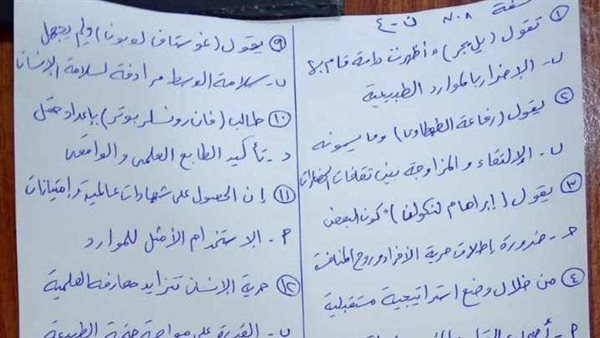 فلسفة ٨.٧ ن-٤
① تقول (يل يجر) * أظهرت دراسة قام بها
ب- الإضرار بالموارد الطبيعية
② ليقول (رفاعة الطهطاوى) وما يسمونه
ب- الإلتقاء والمزاوجة بين ثقافات الحضارات
③ يقول (إبراهام لنكولن) * كون البعض
ح- ضرورة إطلاق حرية الأفراد وروح المنافسة
④ من خلال وضع استراتيجية مستقبلية
⑨ يقول (غوستاف لوبون) ولم يجهل
ب- سلامة الوسط مرادفة لسلامة الإنسان
⑩ طالب (فان رونسلر بوتر) بإعداد حقل
د- تأكيد الطابع العلمى والواقعى
⑪ إن الحصول على شهادات عالمية وإمتيازات
٢- الاستخدام الأمثل للموارد
⑫ حرية الإنسان تتزايد معارفه العلمية
ب- القدرة على مواجهة حتمية الطبيعة